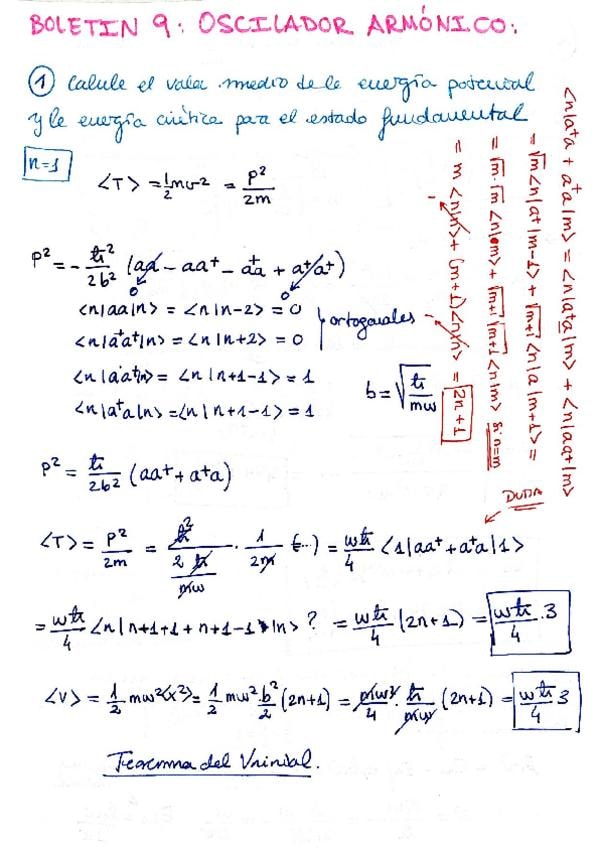 BOLETIN 9: OSCILADOR ARMÓNICO:
① Calcule el valor medio de la energía potencial
y la energía cinética para el estado fundamental
n=1
<T> = 1/2 mv² = p²/2m
p² = - ħ²/2b² (aa - aa⁺ - a⁺a + a⁺a⁺)
0 0
<n|aa|n> = <n|n-2> = 0
<n|a⁺a⁺|n> = <n|n+2> = 0
} ortogonales
<n|a a⁺|n> = <n|n+1-1> = 1
<n|a⁺a|n> = <n|n+1-1> = 1
b = √(ħ/mω)
p² = ħ/2b² (aa⁺ + a⁺a)
DUDA
<T> = p²/2m = ħ²/(2 ħ/mω) · 1/2m (...) = ωħ/4 <1|aa⁺ + a⁺a|1>
= ωħ/4 <n|n+1+1 + n+1-1|n> ? = ωħ/4 (2n+1) = ωħ/4 · 3
<V> = 1/2 mω²<x²> = 1/2 mω² b²/2 (2n+1) = mω²/4 · ħ/mω (2n+1) = ωħ/4 3
Teorema del Virial.
<n|a⁺a + a⁺a|m> = <n|a⁺a|m> + <n|aa⁺|m>
= √m <n|a⁺|m-1> + √m+1 <n|a|m+1> =
= √m · √m <n|m> + √m+1 √m+1 <n|m> si n=m
= m <n|n> + (m+1) <n|n> = 2n+1